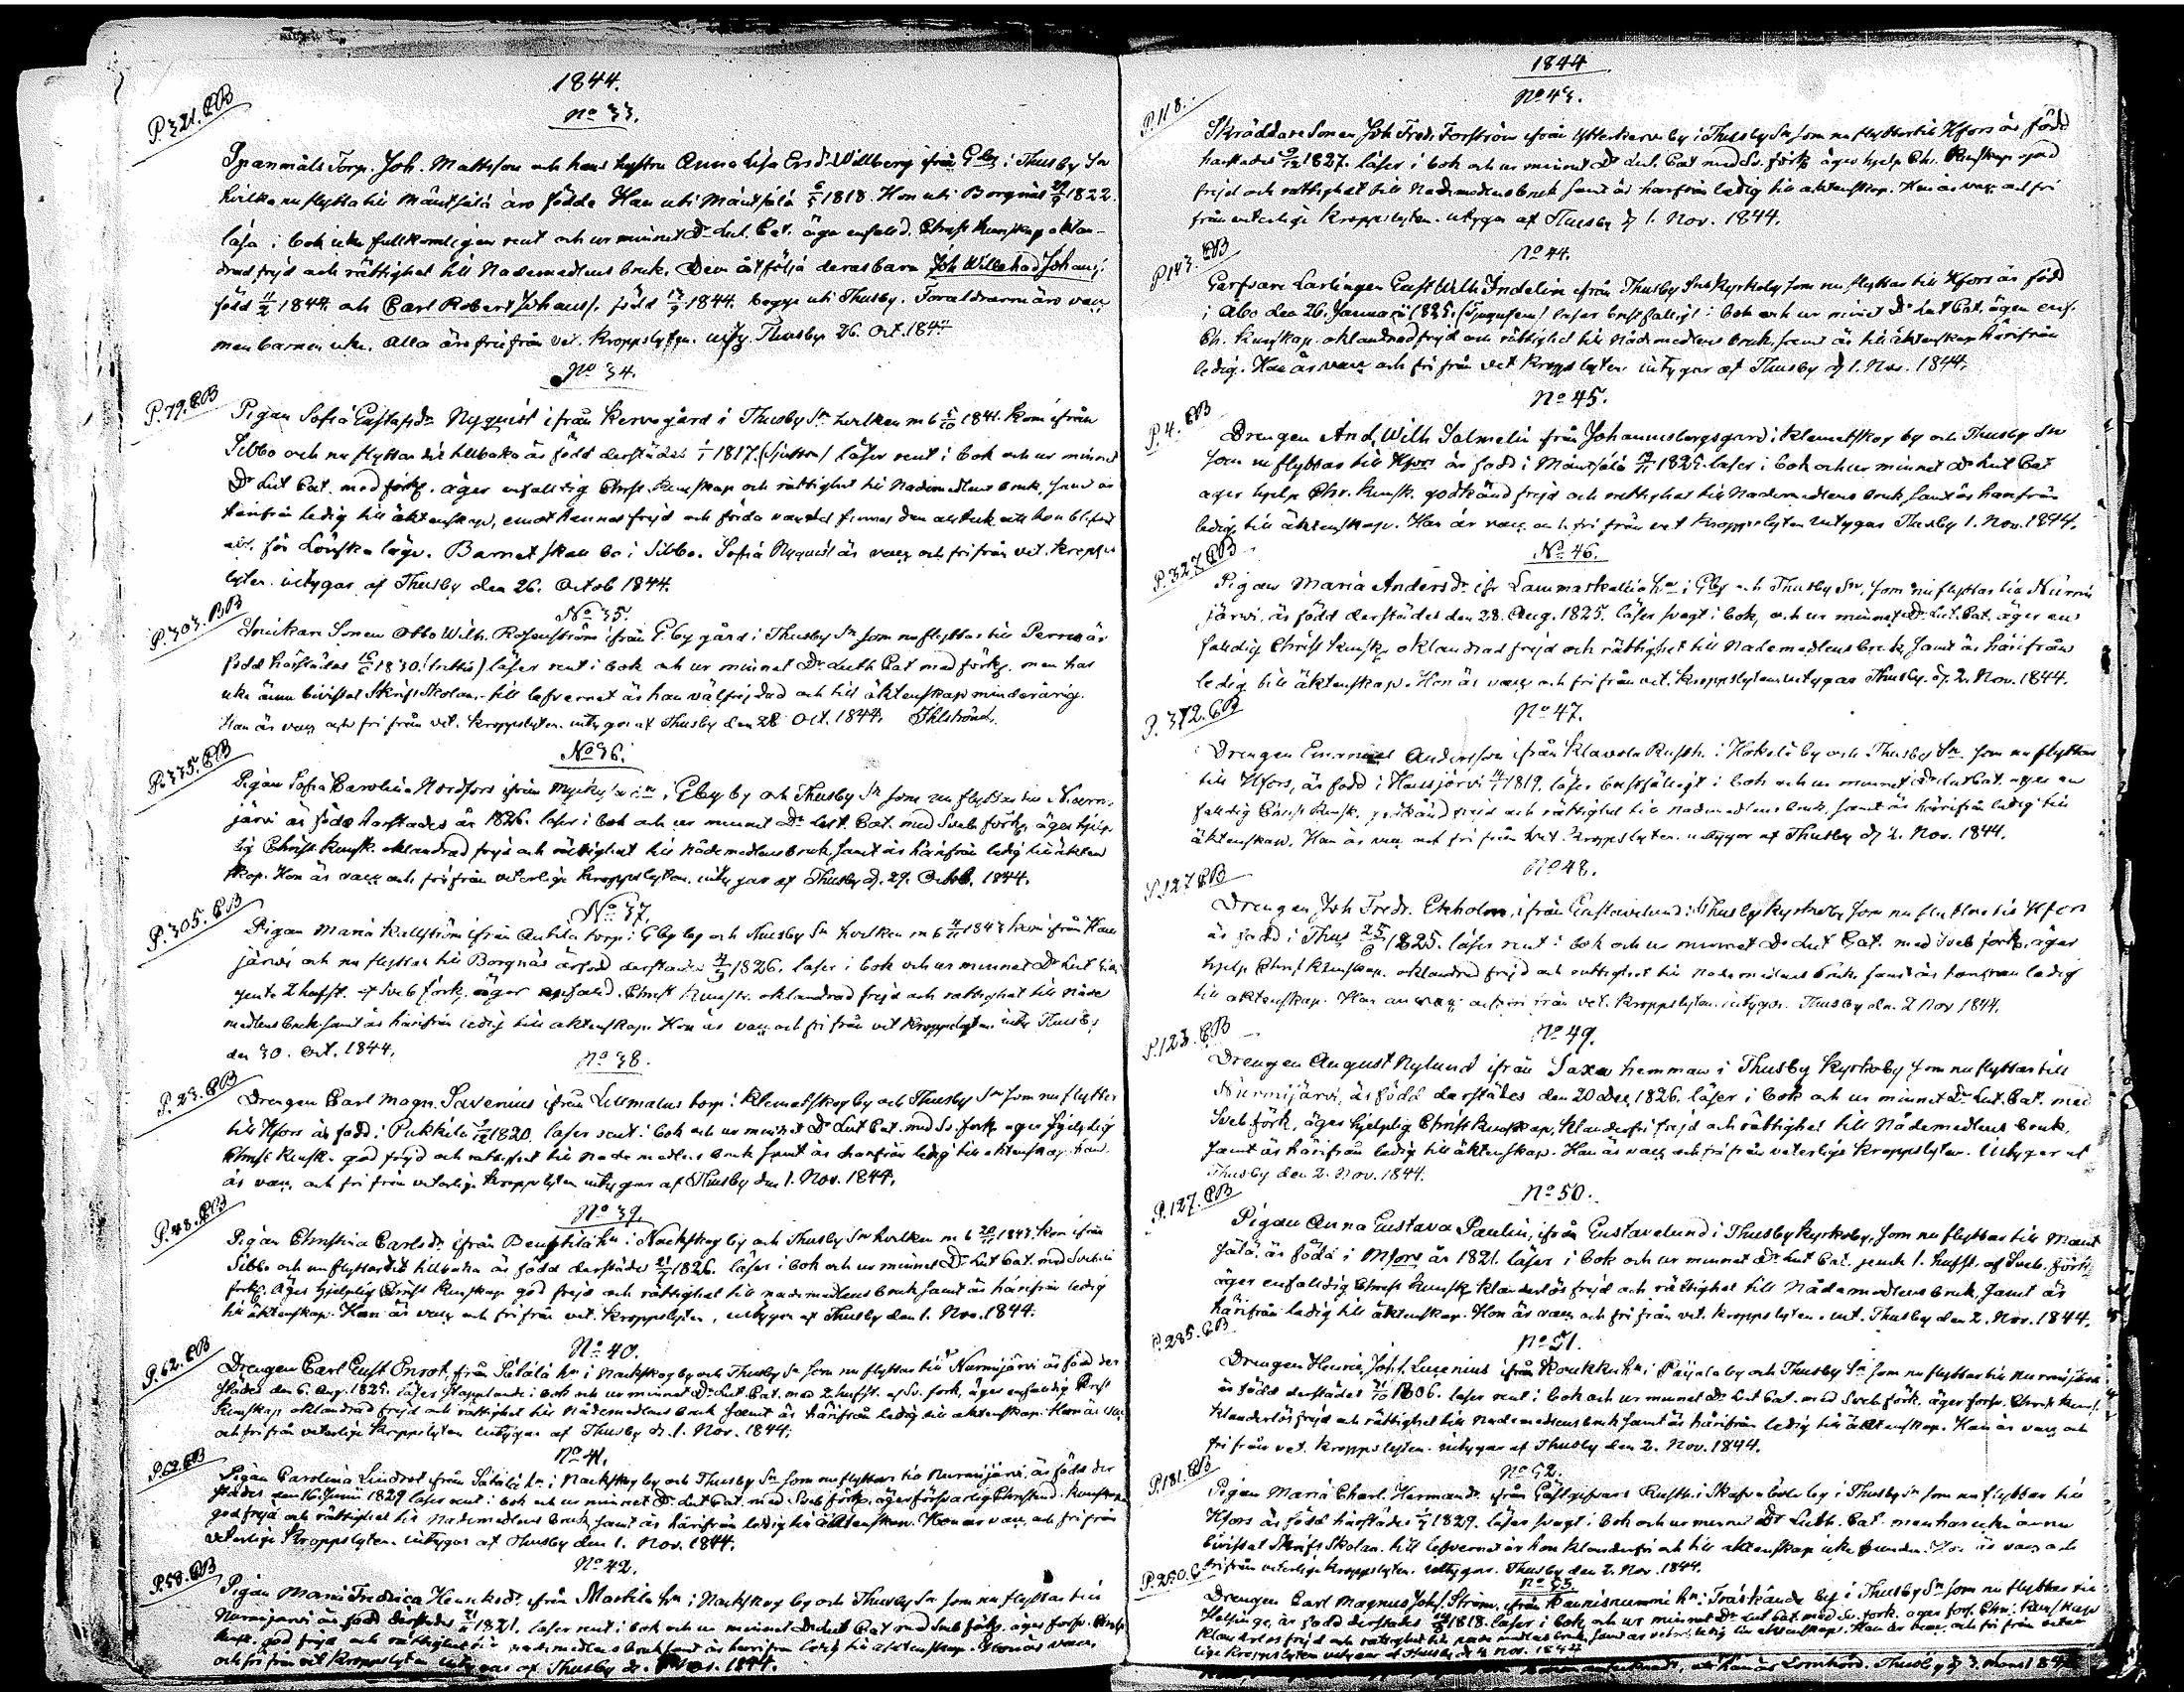 1844.
No 33.
P. 321. CB
Spanmåls Torp. Joh. Mattsson och hans hustru Anna Lisa Ersdr Willberg ifrån Gby i Thusby Sn
hvilka nu flytta till Mäntsälä äro födde Han uti Mäntsälä 1818. Hon uti Borgnäs 1822.
läsa i bok icke fullkomligen rent och ur minnet Dr Lut. Cat. äga enfald. Christ. Kunskap oklan-
drad frejd och rättighet till Nademedlens bruk. Dem åtfölja deras barn Joh Willehad Johanss.
född 1844. och Carl Robert Johanss. född 1844. begge uti Thusby. Föraldrarna äro vacc.
men barnen icke. Alla äro fri från vet. Kroppslyten. intyg. Thusby 26. Oct. 1844
No 34.
P. 79. CB
Pigan Sofia Gustafsdr Nyquist ifrån Kervo gård i Thusby Sn hvilken m 6 1841. kom ifrån
Sibbo och nu flyttar dit tillbaka är född derstädes 1817. (Sjutton) läser rent i bok och ur minnet
Dr Lut Cat. med förkl. äger enfaldig Christ. Kunskap och rättighet till Nademedlens bruk, samt är
härifrån ledig till äktenskap, emot hennes frejd och förda vandel finnes den att hon blifvit
abs. för Lönskaläge. Barnet skall bo i Sibbo. Sofia Nyquist är vacc och fri från vet. kropps
lyten. intygas af Thusby den 26. Octob 1844.
No 35.
P. 303. CB
Snickare Sonen Otto Wilh. Rosenström ifrån Gby gård i Thusby Sn som nu flyttar till Perno är
född härstädes 1830. (trettio) läser rent i bok och ur minnet Dr Luth Cat med förkl. men har
icke ännu bivistat Skriftskolan. till lefvernet är han välfrejdad och till äktenskap minderårig.
Han är vacc och fri från vet. kroppslyten. intygas af Thusby den 28 Oct. 1844. Ahlstrand.
No 36.
P. 335. CB
Pigan Sofia Carolina Nordfors ifrån i Gby by och Thusby Sn som nu flyttar till Nurmi-
järvi är född härstädes år 1826. läser i bok och ur minnet Dr Lut. Cat. med Sveb förkl, äger hjelp
lig Christ. Kunsk. oklandrad frejd och rättighet till Nådemedlens bruk samt är härifrån ledig till äkten
skap. Hon är vacc och fri från veterliga kroppslyten. intygas af Thusby d. 29. Octob. 1844.
No 37.
P. 305. CB
Pigan Maria Kullström ifrån Anttila torp i Gby by och Thusby Sn hvilken m 6 1843 kom från Haus
järvi och nu flyttar till Borgnäs är född derstädes 1826. läser i bok och ur minnet Dr Lut Cat
jemte 2 hufst. af Sveb förk. äger enfald. Christ Kunsk. oklandrad frejd och rättighet till Nåde
medlens bruk samt är härifrån ledig till äktenskap. Hon är vacc och fri från vet kroppslyten. intyg Thusby
den 30. Oct. 1844.
No 38.
P. 23. CB
Drengen Carl Magn. Savenius ifrån Lillmalms torp i Klemetskog by och Thusby Sn som nu flyttar
till Hfors är född i Pukkila 1820. läser rent i bok och ur minnet Dr Lut Cat. med Sv. förk. eger hjelplig
Christ Kunsk. god frejd och rättighet till Nademedlens bruk samt är härifrån ledig till äktenskap. Han
är vacc. och fri från veterliga kroppslyten intygas af Thusby den 1. Nov. 1844.
No 39.
P. 48. CB
Pigan Christina Carlsdr ifrån hn i Nackskog by och Thusby Sn hvilken m 6 1843. kom ifrån
Sibbo och nu flyttar dit tillbaka är född derstädes 1826. läser i bok och ur minnet Dr Lut Cat. med Svebilii
forkl. äger hjelplig Christ Kunskap god frejd och rättighet till nademedlens bruk samt är härifrån ledig
till äktenskap. Hon är vacc och fri från vet. kroppslyten, intygas af Thusby den 1. Nov. 1844.
No 40.
P. 62. CB
Drengen Carl Gust Enrot, från Sätälä hn i Nackskog by och Thusby Sn som nu flyttar till Nurmijärvi är född der
städes den 6. Aug. 1825. läser stapplande i bok och ur minnet Dr Lut. Cat. med 2 hufst. af Sv. förk, äger enfaldig Christ
Kunskap oklandrad frejd och rättighet till Nådemedlens bruk samt är härifrån ledig till äktenskap. Han är vacc
och fri från veterliga kroppslyten intygas af Thusby d. 1. Nov. 1844.
No 41.
P. 62. CB
Pigan Carolina Lindrot ifrån Sätälä hn i Nackskog by och Thusby Sn som nu flyttar till Nurmijärvi är född der
städes den 16. Junii 1829 läser rent i bok och ur minnet Dr Lut Cat. med Sveb förk, äger försvarlig Christend. kunskap
god frejd och rättighet till Nademedlens bruk samt är härifrån ledig till äktenskap. Hon är vacc och fri från
veterliga kroppslyten. intygas af Thusby den 1. Nov. 1844.
No 42.
P. 58. CB
Pigan Maria Fredrica Henriksdr ifrån Mattila hn i Nackskog by och Thusby Sn som nu flyttar till
Nurmijärvi är född derstädes 1821. läser rent i bok och ur minnet Dr Lut Cat med Sveb förk. äger forsv. Christ
Kunsk. god frejd och rättighet till nademedlens bruk samt är härifrån ledig till äktenskap. Hon är vacc.
och fri från vet kroppslyten intygas af Thusby d. Nov. 1844.
1844
No 43.
P. 118.
Skräddare Sonen Joh Fredr. Forström ifrån Ytterkervo by i Thusby Sn som nu flyttar till Hfors är född
härstädes 1827. läser i bok och ur minnet Dr Lut. Cat med Sv. förk äger hjelp Chr. Kunskap god
frejd och rättighet till Nademedlens bruk samt är härifrån ledig till äktenskap. Han är vacc och fri
från veterliga kroppslyten. intygas af Thusby d 1. Nov. 1844.
No 44.
P 143. CB
Garfvare Lärlingen Gust Wilh Andelin ifrån Thusby Sns Kyrkoby som nu flyttar till Hfors är född
i Åbo den 26. Januarii 1825. (Tjugufem) läser bristfälligt i bok och ur minnet Dr Lut Cat. ägen enf.
Ch. kunskap. oklandrad frejd och rättighet till Nådemedlens bruk, samt är till äktenskap härifrån
ledig. Han är vacc och fri från vet kroppslyten intygas af Thusby d 1. Nov. 1844.
No 45.
P. 4. CB
Drengen And. Wilh Salmelin från Johannisbergsgård i Klemetskog by och Thusby Sn
som nu flyttar till Hfors är född i Mäntsälä 1825. läser i bok och ur minnet Dr Lut Cat
äger hjelp Chr. Kunsk. godkänd frejd och rättighet till Nademedlens bruk, samt är härifrån
ledig till äktenskap. Han är vacc och fri från vet kroppslyten intygas Thusby 1. Nov. 1844.
No 46.
P. 327 CB
Pigan Maria Andersdr ifr Lammaskallia hn i Gby och Thusby Sn, som nu flyttar till Nurmi
järvi, är född derstädes den 28. Aug. 1825. läser svagt i bok, och ur minnet Dr Lut. Cat. äger en
faldig Christ kunsk oklandrad frejd och rättighet till Nademedlens bruk, samt är härifrån
ledig till äktenskap. Hon är vacc och fri från vet. kroppslyten intygas Thusby d. 2. Nov. 1844.
No 47.
P. 372. CB
Drengen Emanuel Andersson ifrån Klavola Rusth. i Hökelä by och Thusby Sn som nu flyttar
till Hfors, är född i Hausjärvi 1819. läser bristfälligt i bok och ur minnet Dr Lut Cat. äger en
faldig Christ Kunsk. godkänd frejd och rättighet till nademedlens bruk, samt är härifrån ledig till
äktenskap. Han är vacc och fri från vet. kroppslyten. intygas af Thusby d 2. Nov. 1844.
No 48.
P. 127 CB
Drengen Joh Fredr. Ekholm, ifrån Gustavelund i Thusby Kyrkoby som nu flyttar till Hfors
är född i Thus 1825. läser rent i bok och ur minnet Dr Lut Cat. med Sveb förk, äger
hjelp Christ Kunskap. oklandrad frejd och rättighet till nademedlens bruk, samt är härifrån ledig
till äktenskap. Han är vacc och fri från vet. kroppslyten. intygas. Thusby den 2 Nov 1844.
No 49.
P. 123. CB
Drengen August Nylund ifrån Saxa hemman i Thusby Kyrkoby som nu flyttar till
Nurmijärvi, är född derstädes den 20 Dec 1826. läser i bok och ur minnet Dr Lut. Cat. med
Sveb förk, äger hjelplig Christ kunskap, klanderfri frejd och rättighet till Nådemedlens bruk,
samt är härifrån ledig till äktenskap. Han är vacc och fri från veterliga kroppslyten. intygas af
Thusby den 2. Nov. 1844.
No 50.
P. 127. CB
Pigan Anna Gustava Paulin, ifrån Gustavelund i Thusby Kyrkoby, som nu flyttar till Mänt
sälä, är född i Mfors år 1821. läser i bok och ur minnet Dr Lut Cat. jemte 1. hufst. af Sveb. förk.
äger enfaldig Christ kunsk klanderlös frejd och rättighet till Nådemedlens bruk, samt är
härifrån ledig till äktenskap. Hon är vacc och fri från vet. kroppslyten. int. Thusby den 2. Nov. 1844.
No 51.
P. 285. CB
Drengen Henric Johs. Lucenius ifrån Koukku hn i Paijala by och Thusby Sn som nu flyttar till Nurmijärvi
är född derstädes 1806. läser rent i bok och ur minnet Dr Lut Cat. med Sveb förk. äger forsv. Christ Kunsk.
klanderlös frejd och rättighet till Nademedlens bruk samt är härifrån ledig till äktenskap. Han är vacc och
fri från vet. kroppslyten. intygas af Thusby den 2. Nov. 1844.
No 52.
P. 181. CB
Pigan Maria Charl. Hermansdr ifrån Gästgifvars Rusth. i Skafvaböle by i Thusby Sn som nu flyttar till
Hfors är född härstädes 1829. läser svagt i bok och ur minnet Dr Luth. Cat. men har icke ännu
bivistat Skriftskolan. till lefvernet är hon klanderfri och till äktenskap icke bunden. Hon är vacc och
fri från veterliga kroppslyten. intygas. Thusby den 2. Nov. 1844.
No 53.
P. 250. C
Drengen Carl Magnus Johs. Ström, ifrån Kaunisnummi hn i Träskända by i Thusby Sn som nu flyttar till
Helsinge, är född derstädes 1818. läser i bok och ur minnet Dr Lut Cat. med Sv. förk. äger forsv. Chr. Kunskap
klanderlös frejd och rättighet till nademedlens bruk, samt är ledig till äktenskap. Han är vacc. och fri från veter
liga kroppslyten intygas af Thusby d 2 Nov. 1844
Thusby d 3. Mars 184